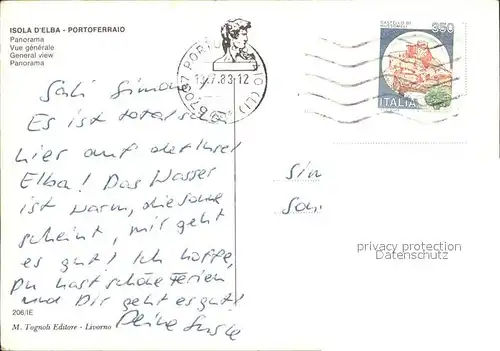 ISOLA D'ELBA - PORTOFERRAIO
Panorama
Vue générale
General view
Panorama
57037 PORTOFERRAIO (LI)
13.7.83-12
CASTELLO DI
MUSSOMELI
350
ITALIA
Säli Simone
Es ist total schön
hier auf der Insel
Elba! Das Wasser
ist warm, die Sonne
scheint, mir geht
es gut! Ich hoffe,
Du hast schöne Ferien
und Dir geht es gut!
Deine
Sim
San
privacy protection
Datenschutz
206/IE
M. Tognoli Editore - Livorno